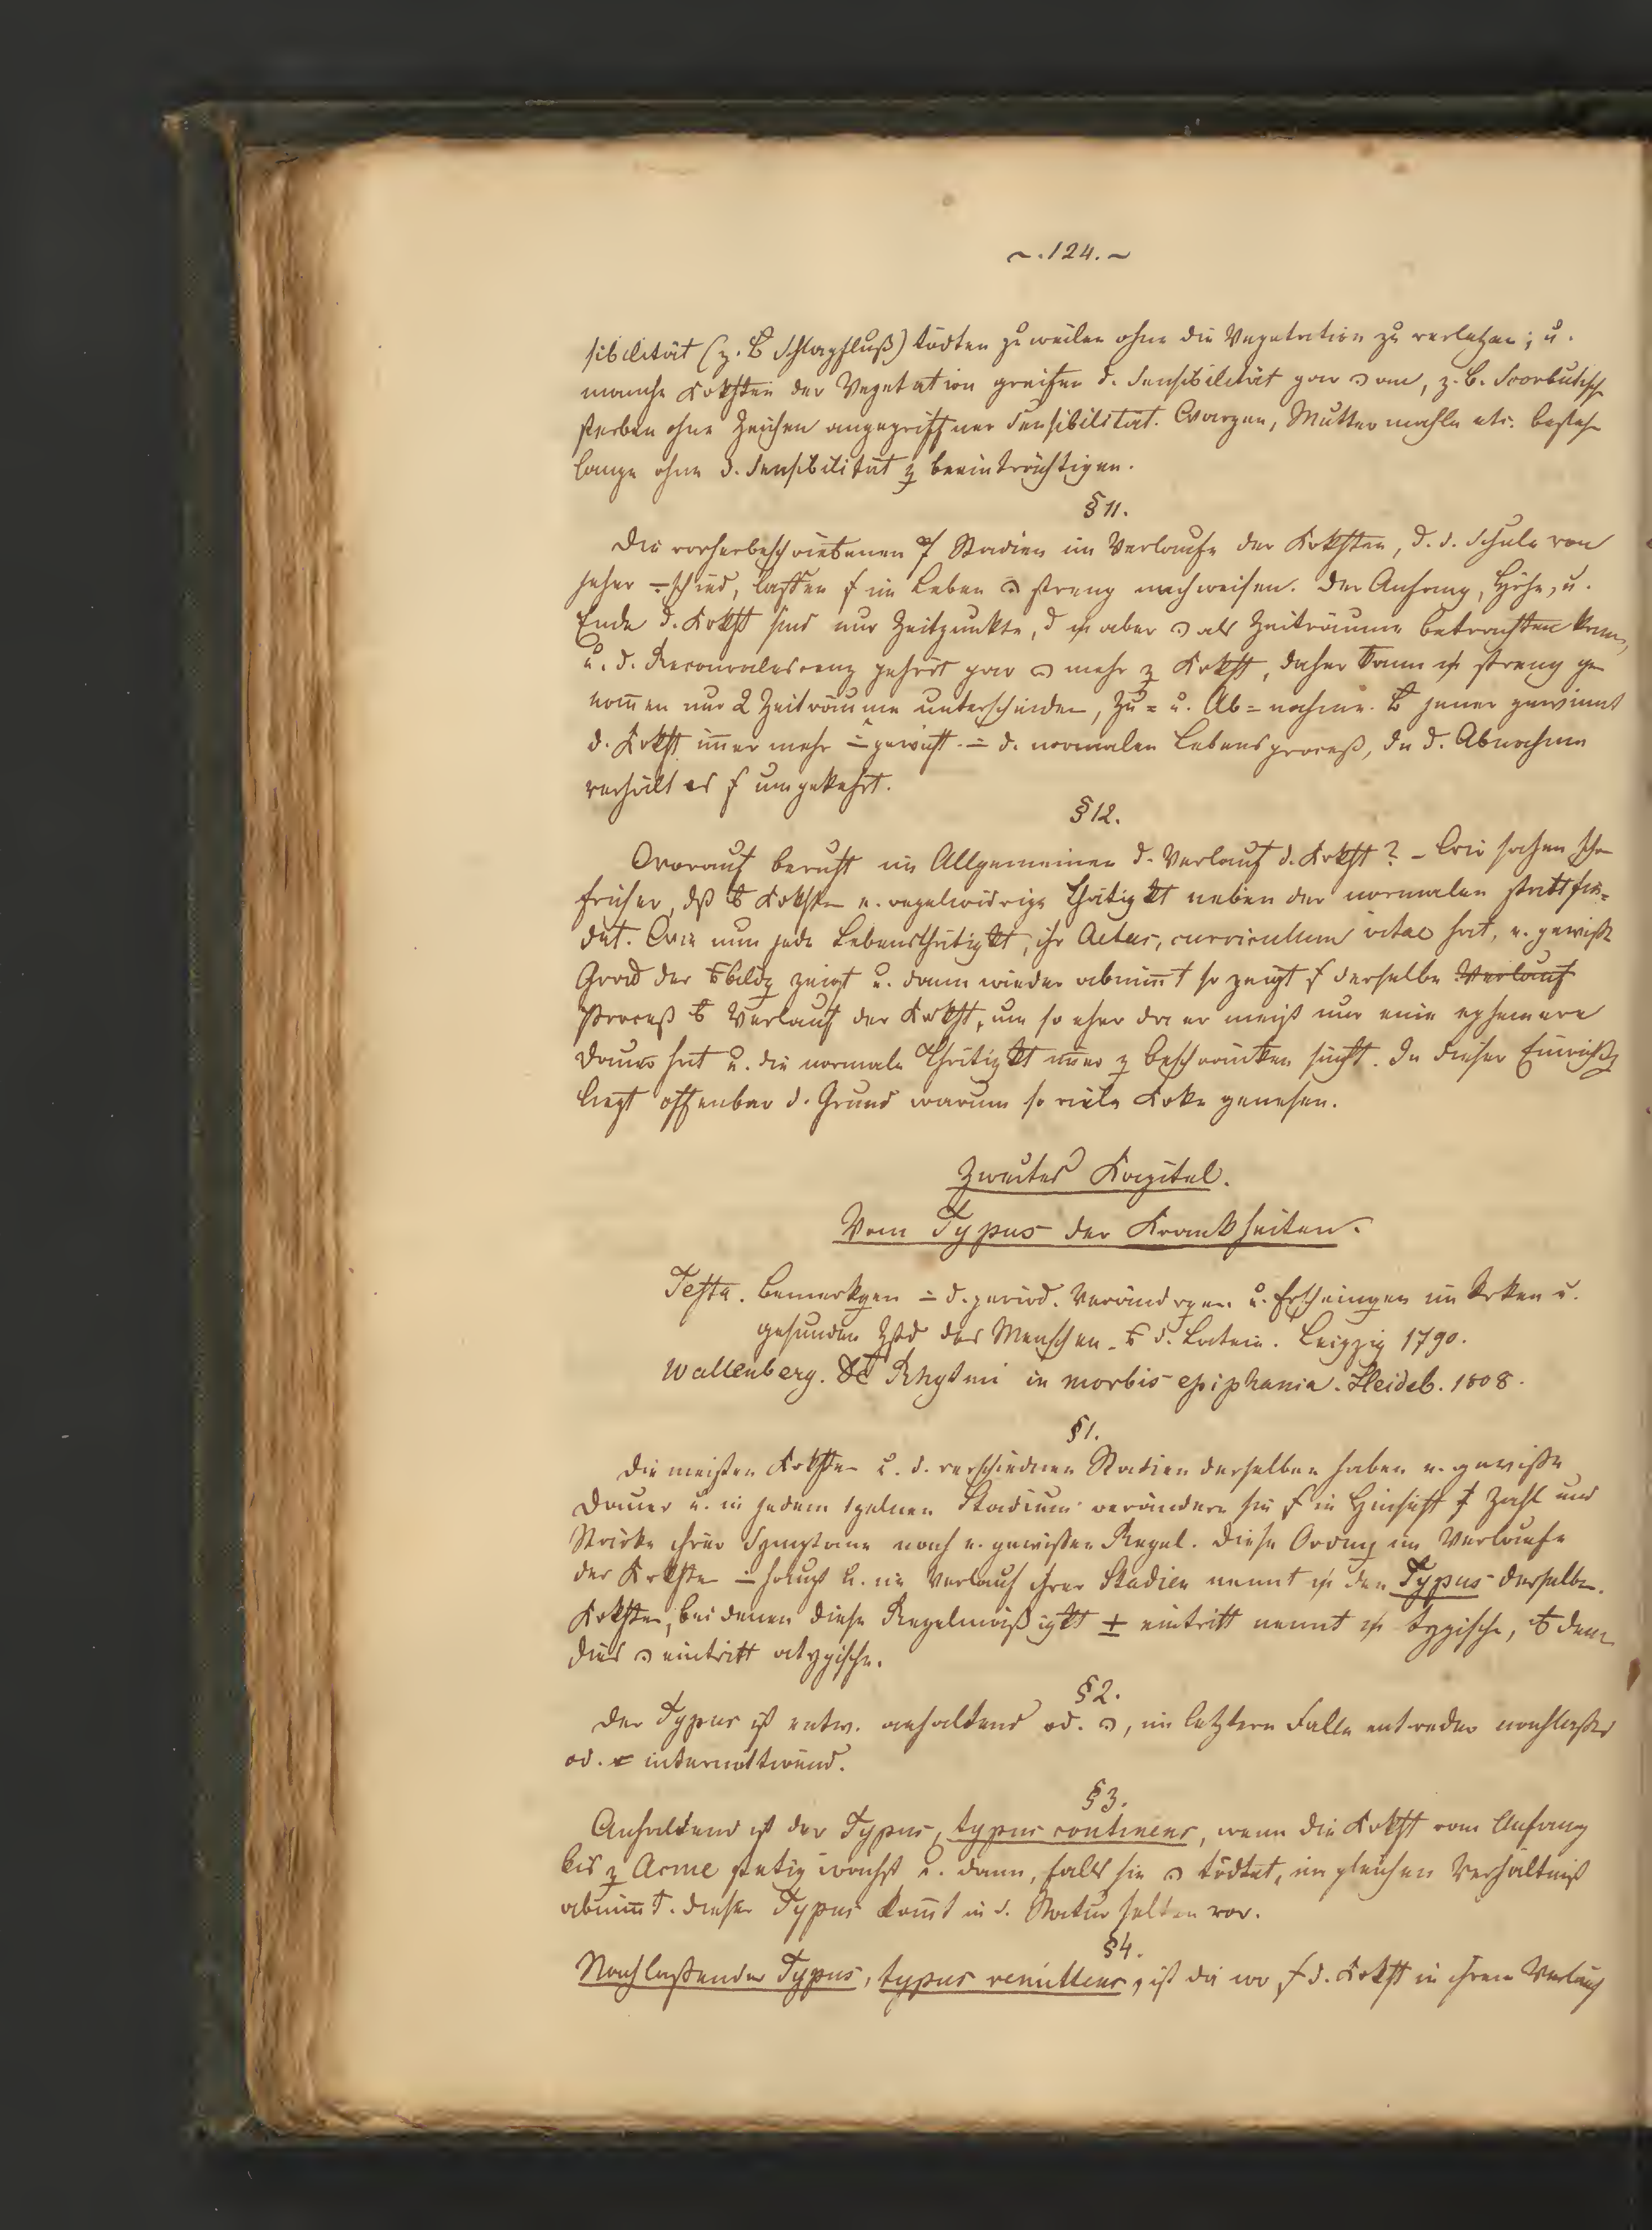 ~. 124. ~
sibilität (z. B Schlagfluß) tödten zuweilen ohne die Vegetation zu verletzen; u.
manche Krkhten der Vegetation greifen d. Sensibilität gar an, z. B. Scorbutische
sterben ohne Zeichen angegriffner Sensibilität. Warzen, Muttermahle etc. bestehn
lange ohne d. Sensibilität z beeinträchtigen.
§ 11.
Die vorherbeschriebenen Stadien im Verlaufe der Krkhten, d. d. Schule von
jeher schied, lassen im Leben streng nachweisen. Der Anfang, Höhe, u.
Ende d. Krkht sind nur Zeitpunkte, d aber als Zeiträume betrachten kann,
u. d. Reconvalescenz gehört gar mehr z Krkht, daher kann streng ge
nom̄en nur 2 Zeiträume unterscheiden, Zu= u. Ab=nahme. B jener gewinnt
d. Krkht im̄er mehr gewicht d. normalen Lebensproceß, In d. Abnahme
verhält es umgekehrt.
§ 12.
Worauf beruht im Allgemeinen d. Verlauf d. Krkht? – Wir sahen schon
früher, dß b Krkhten e. regelwidrige Thätigkt neben der normalen stattfin=
det. Wie nun jede Lebensthätigkt, ihr Aetas, curriculum vitae hat, e. gewisse
Grad der bildg zeigt u. dann wieder abnim̄t so zeigt derselbe Verlauf
Proceß b Verlauf der Krkht, um so eher da er meist nur eine ephemere
Dauer hat u. die normale Thätigkt im̄er z beschränken sucht. In dieser Einrichtg
liegt offenbar d. Grund warum so viele Krke genesen.
Zweites Kapitel.
Vom Typus der Krankheiten.
Testa. Bemerkgen d. period. Verändrgen. u. Erscheinungen im krken u.
gesunden Zstd des Menschen. d. Latein. Leipzig 1790.
Wallenberg. De Rhytmi in morbis epiphania. Heidelb. 1808.
§ 1.
Die meisten Krkhten u. d. verschiednen Stadien derselben haben e. gewisse
Dauer u. in jedem 1zelnen Stadium verändern sie in Hinsicht Zahl und
Stärke ihrer Symptome nach e. gewissen Regel. Diese Ordng im Verlaufe
der Krkhten haupt u. im Verlauf ihrer Stadien nennt den Typus derselben.
Krkhten, bei denen diese Regelmäßigkt ± eintritt nennt typische, b denen
dies eintritt atypische.
§ 2.
Der Typus ist entw. anhaltend od. , im letztern Falle entweder nachlassend
od. intermittirend.
§ 3.
Anhaltend ist der Typus, typus continens, wenn die Krkht vom Anfang
bis z Acme stetig wächst u. dann, falls sie tödtet, im gleichen Verhältniß
abnim̄t. Dieser Typus kom̄t in d. Natur selten vor.
§ 4.
Nachlassender Typus, typus remittens, ist da wo d. Krkht in ihrem Verlauf